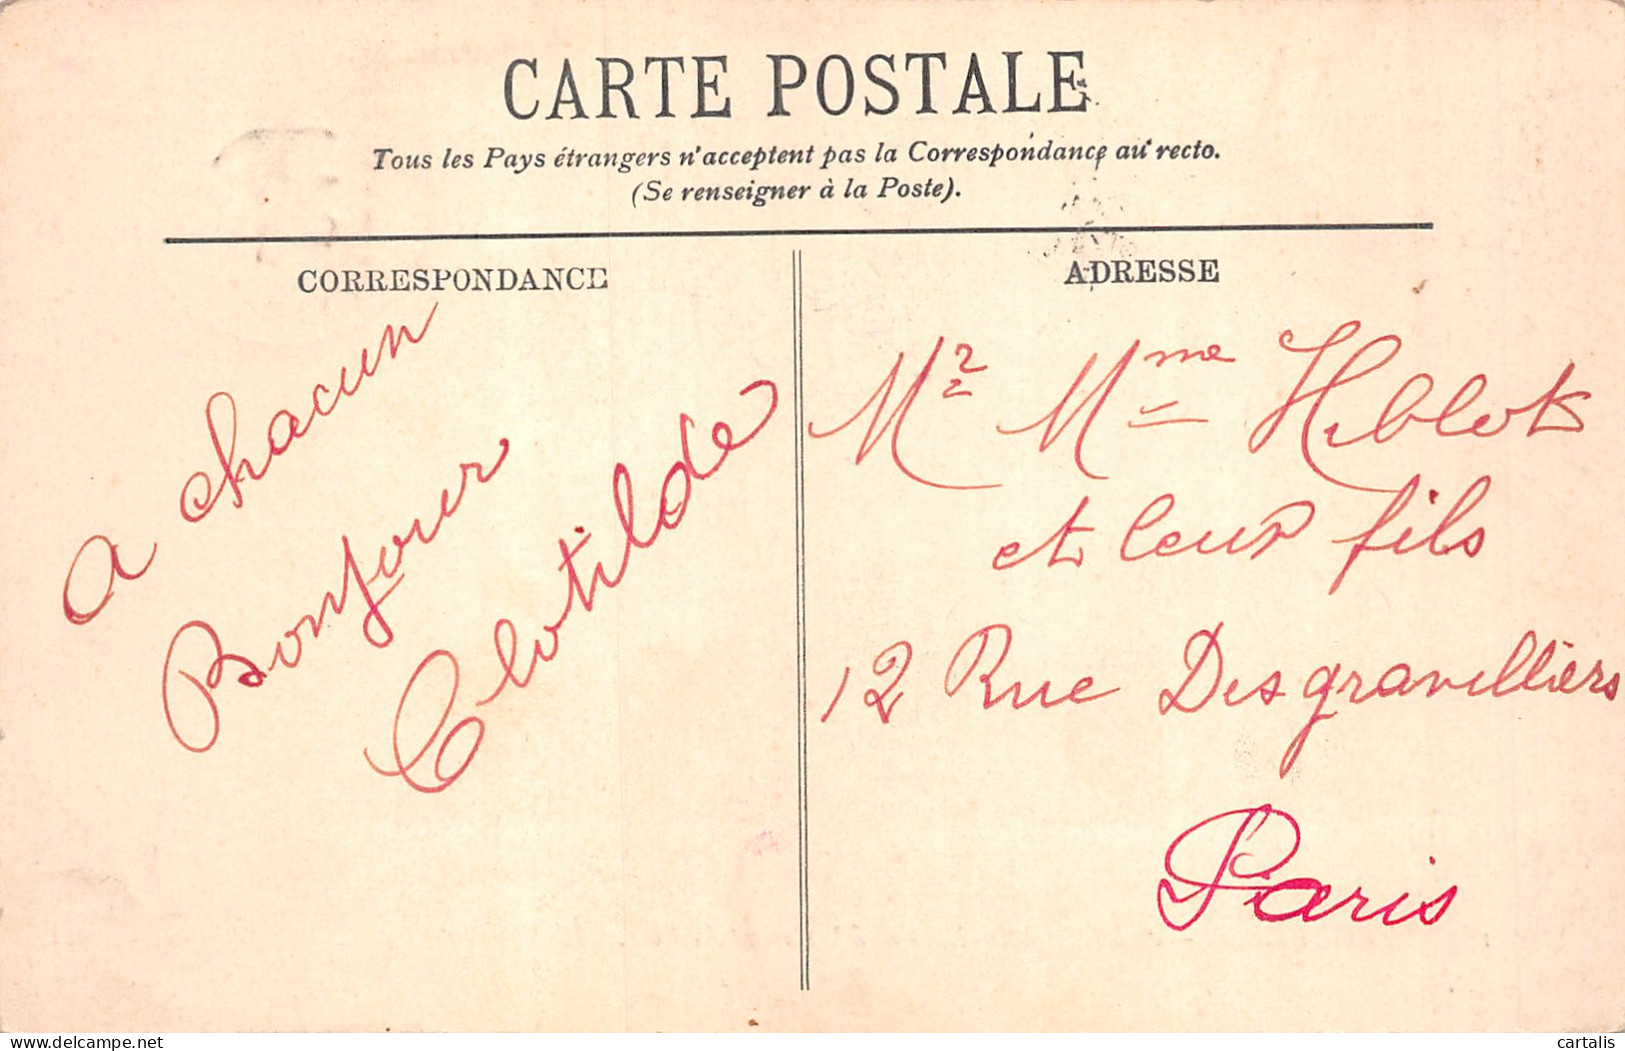 CARTE POSTALE
Tous les Pays étrangers n'acceptent pas la Correspondance au recto.
(Se renseigner à la Poste).
CORRESPONDANCE
A chacun
Bonjour
Clotilde
ADRESSE
Mr Mme Hiblot
et leur fils
12 Rue Desgravilliers
Paris
www.delcampe.net
cartalis